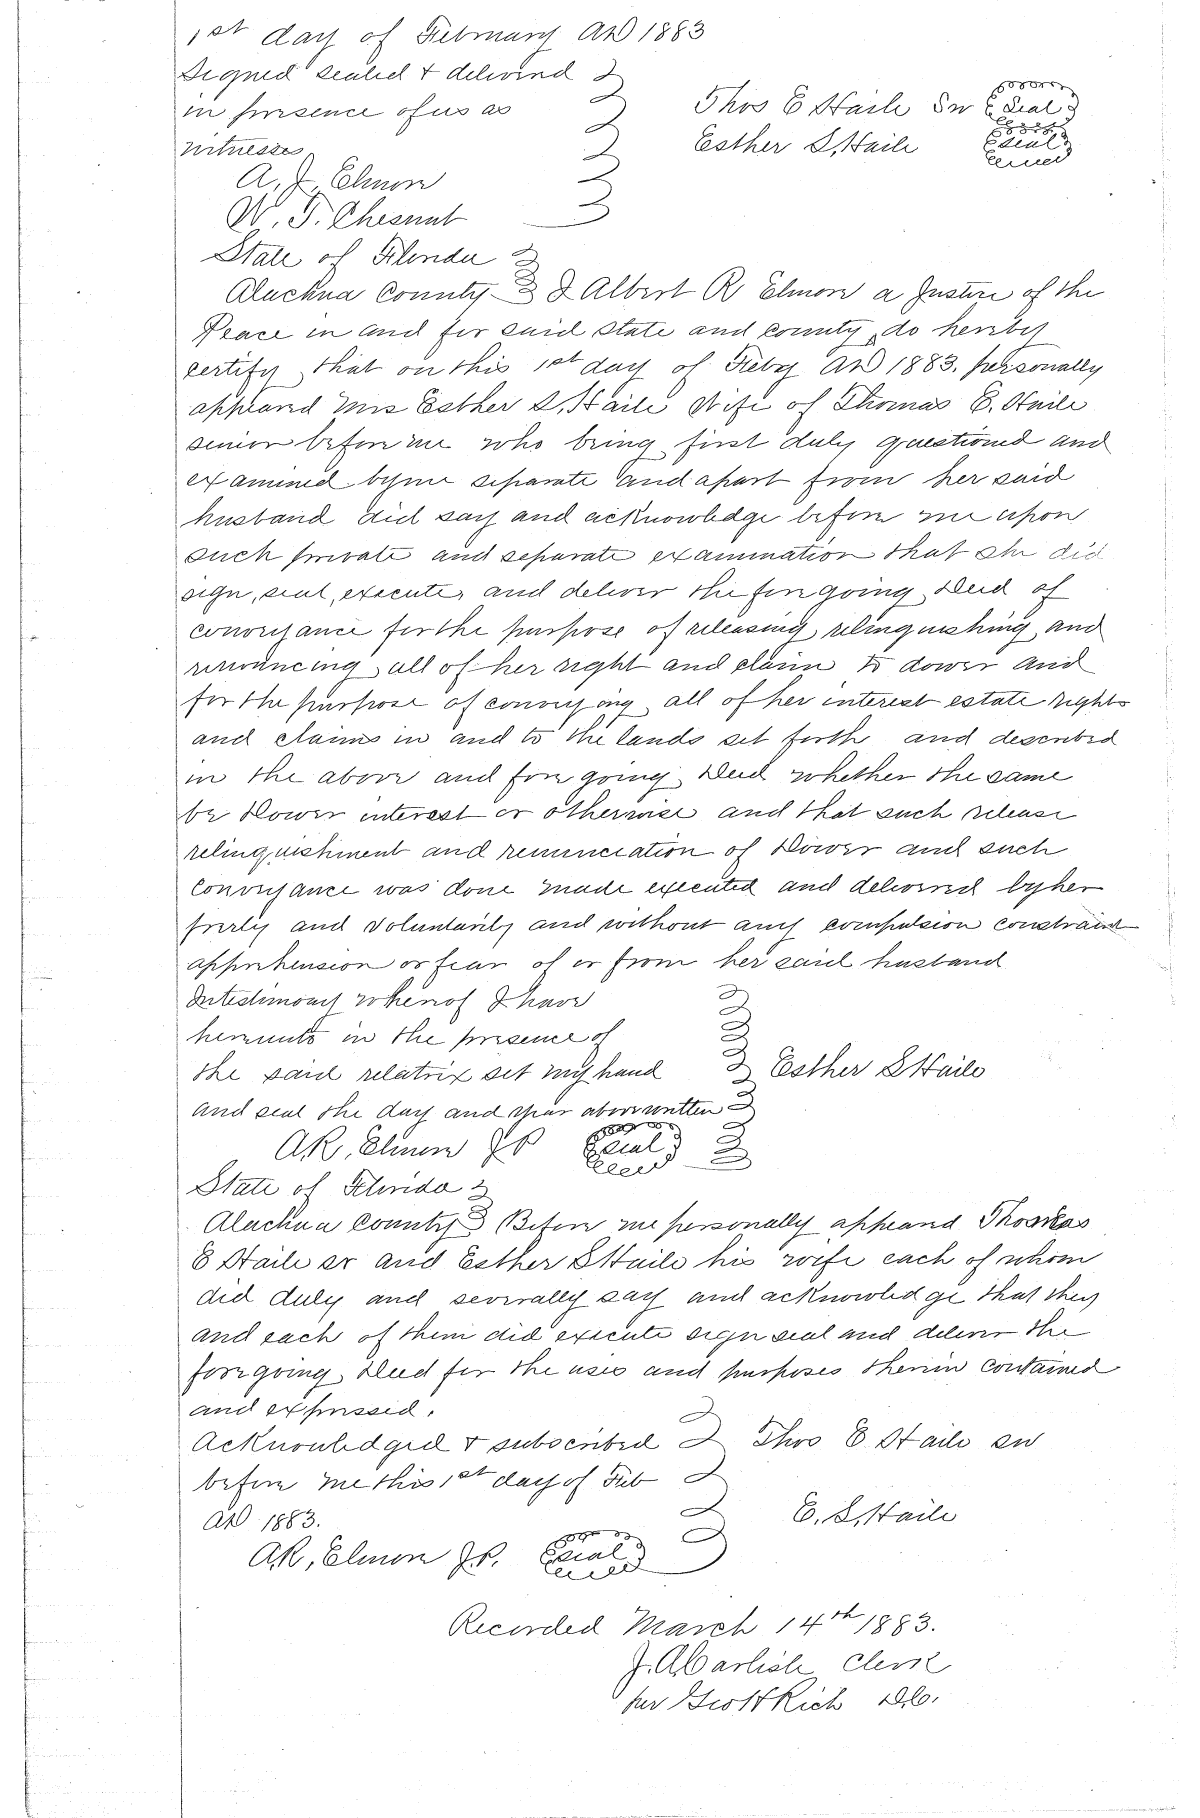 1st day of February AD 1883
Signed sealed & delivered
in presence of us as
witnesses
Thos E Haile Sn Seal
Esther S. Haile Seal
A. J. Elmore
W. T. Chesnut
State of Florida
Alachua County I Albert R Elmore a Justice of the
Peace in and for said state and county, do hereby
certify, that on this 1st day of Feby AD 1883. personally
appeared Mrs Esther S. Haile Wife of Thomas E. Haile
senior before me who being first duly questioned and
examined by me separate and apart from her said
husband did say and acknowledge before me upon
such private and separate examination that she did
sign, seal, execute, and deliver the foregoing Deed of
conveyance for the purpose of releasing relinquishing and
renouncing all of her right and claim to dower and
for the purpose of conveying all of her interest estate rights
and claims in and to the lands set forth and described
in the above and foregoing Deed whether the same
be Dower interest or otherwise and that such release
relinquishment and renunciation of Dower and such
Conveyance was done made executed and delivered by her
freely and voluntarily and without any compulsion constraint
apprehension or fear of or from her said husband
In testimony whereof I have
hereunto in the presence of
the said relatrix set my hand
and seal the day and year above written
Esther S Haile
A R, Elmore JP Seal
State of Florida
Alachua County Before me personally appeared Thomas
E Haile sr and Esther S Haile his wife each of whom
did duly and severally say and acknowledge that they
and each of them did execute sign seal and deliver the
foregoing Deed for the uses and purposes therein contained
and expressed.
Acknowledged & subscribed
before me this 1st day of Feb
AD 1883.
Thos E. Haile sn
E. S. Haile
A R, Elmore JP. Seal
Recorded March 14th 1883.
J. A Carlisle Clerk
per Geo H Rich D.C.